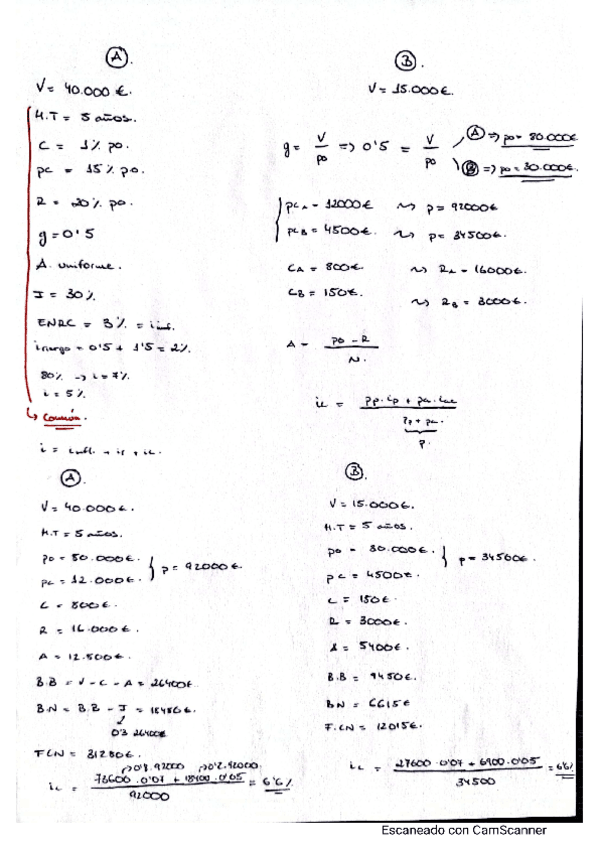 Ⓐ.
V = 40.000 €.
H.T = 5 años.
C = 1% po.
pc = 15% po.
R = 20% po.
g = 0'5
A. uniforme.
I = 30%.
ENRC = 3% = i inf.
i riesgo = 0'5 + 1'5 = 2%.
80% → i = 7%
i = 5%.
↳ Común.
i = infl. + ir + ic.
Ⓑ.
V = 15.000€.
g = V/po => 0'5 = V/po
Ⓐ => po = 80.000€
Ⓑ => po = 30.000€.
pc A = 12000€ ~> p = 92000€
pc B = 4500€. ~> p = 34500€.
CA = 800€. ~> RA = 16000€.
CB = 150€. ~> RB = 3000€.
A = (po - R)/N.
ic = (pp.ip + pa.iac)/(pp + pa)
p.
Ⓐ.
V = 40.000€.
H.T = 5 años.
po = 80.000€.
pc = 12.000€.
p = 92000€.
C = 800€.
R = 16.000€.
A = 12.500€.
B.B = V - C - A = 26400€
B.N = B.B - I = 18480€.
0'3 26400€
FCN = 31280€.
0'8.92000 0'2.92000
ic = (73600.0'07 + 18400.0'05)/92000 = 6'6%
Ⓑ.
V = 15.000€.
H.T = 5 años.
po = 30.000€.
pc = 4500€.
p = 34500€.
C = 150€.
R = 3000€.
A = 5400€.
B.B = 9450€.
BN = 6615€
F.CN = 12015€.
ic = (27600.0'07 + 6900.0'05)/34500 = 6'6%
Escaneado con CamScanner